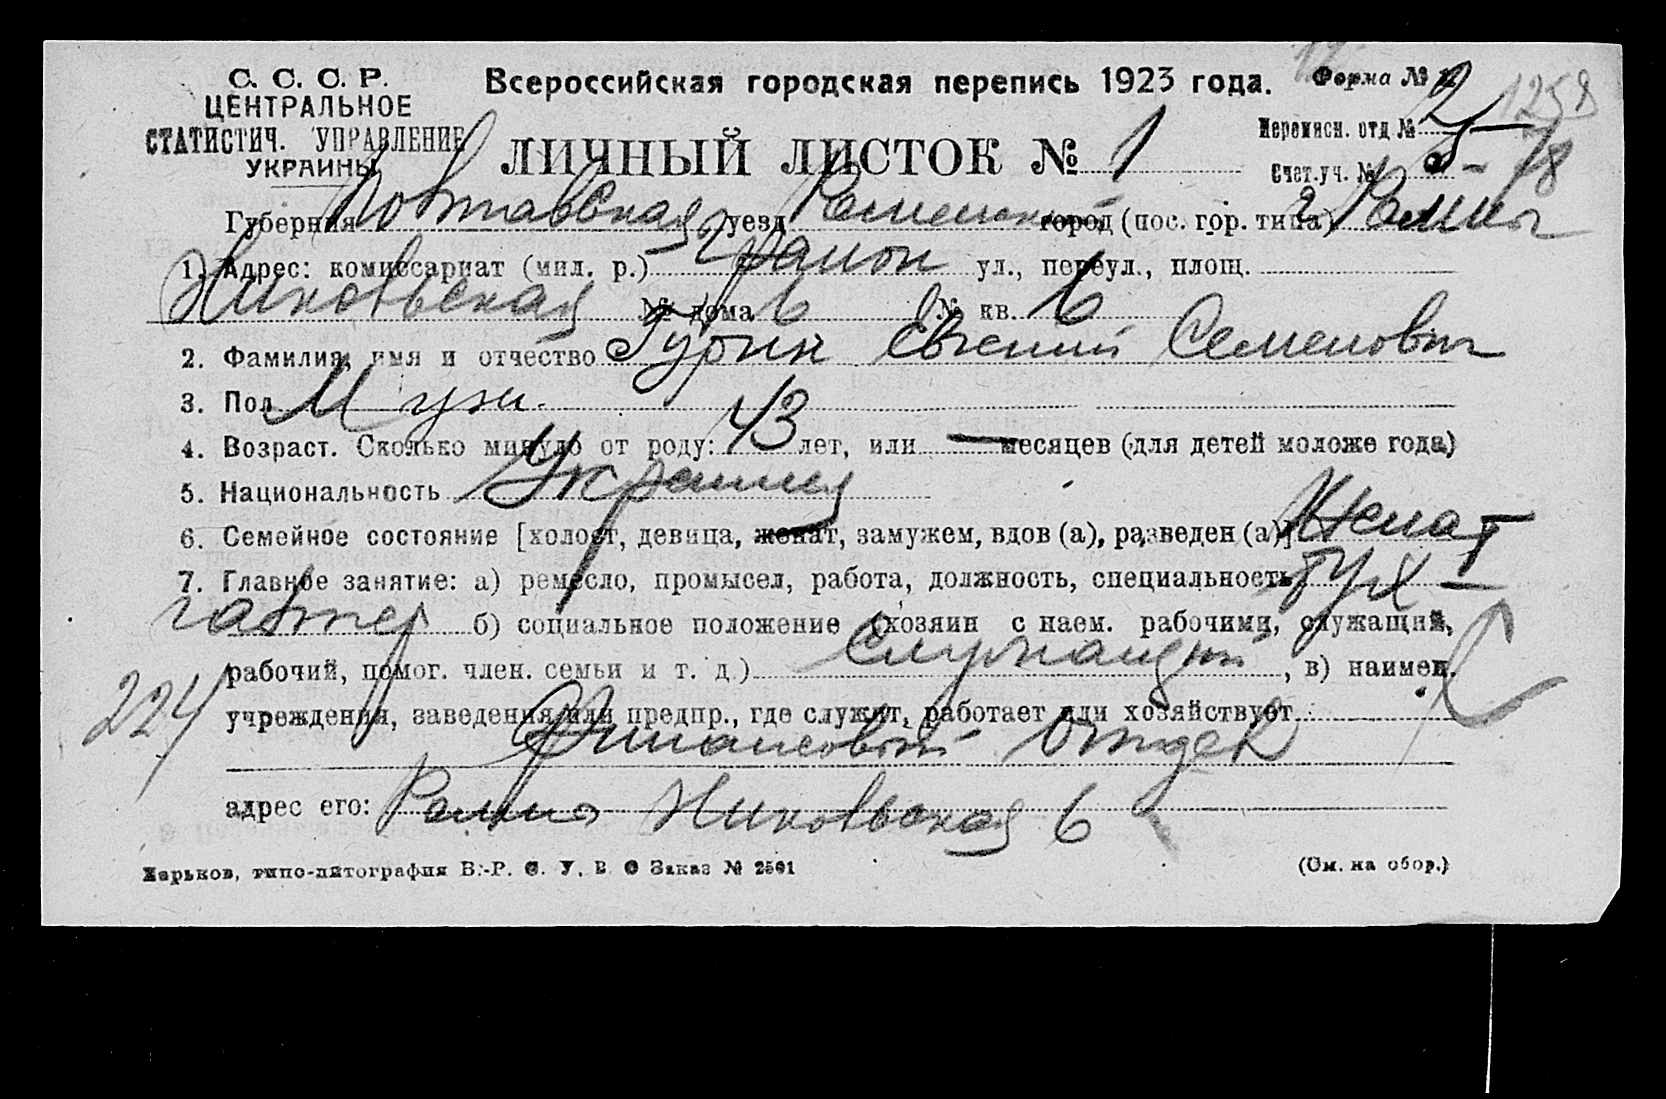 С. С. С. Р.
ЦЕНТРАЛЬНОЕ
СТАТИСТИЧ. УПРАВЛЕНИЕ
УКРАИНЫ
Всероссийская городская перепись 1923 года.
Форма № 1258
ЛИЧНЫЙ ЛИСТОК № 1
Переписн. отд № 2
Счет. уч. № 18
Губерния Полтавская уезд Роменский город (пос. гор. типа) г Ромны
1. Адрес: комиссариат (мил. р.) район ул., переул., площ.
№ дома 6 № кв. 6
2. Фамилия, имя и отчество Евгений Семенович
3. Пол Муж.
4. Возраст. Сколько минуло от роду: 43 лет, или — месяцев (для детей моложе года)
5. Национальность Украинец
6. Семейное состояние [холост, девица, женат, замужем, вдов (а), разведен (а)] Женат
7. Главное занятие: а) ремесло, промысел, работа, должность, специальность Бух-
галтер б) социальное положение (хозяин с наем. рабочими, служащий,
рабочий, помог. член. семьи и т. д.) Служащий, в) наимен.
224
учреждения, заведения или предпр., где служит, работает или хозяйствует
Финансовый Отдел
адрес его: Ромны 6
Харьков, типо-литография В.-Р. С. У. В. О Заказ № 2561
(См. на обор.)